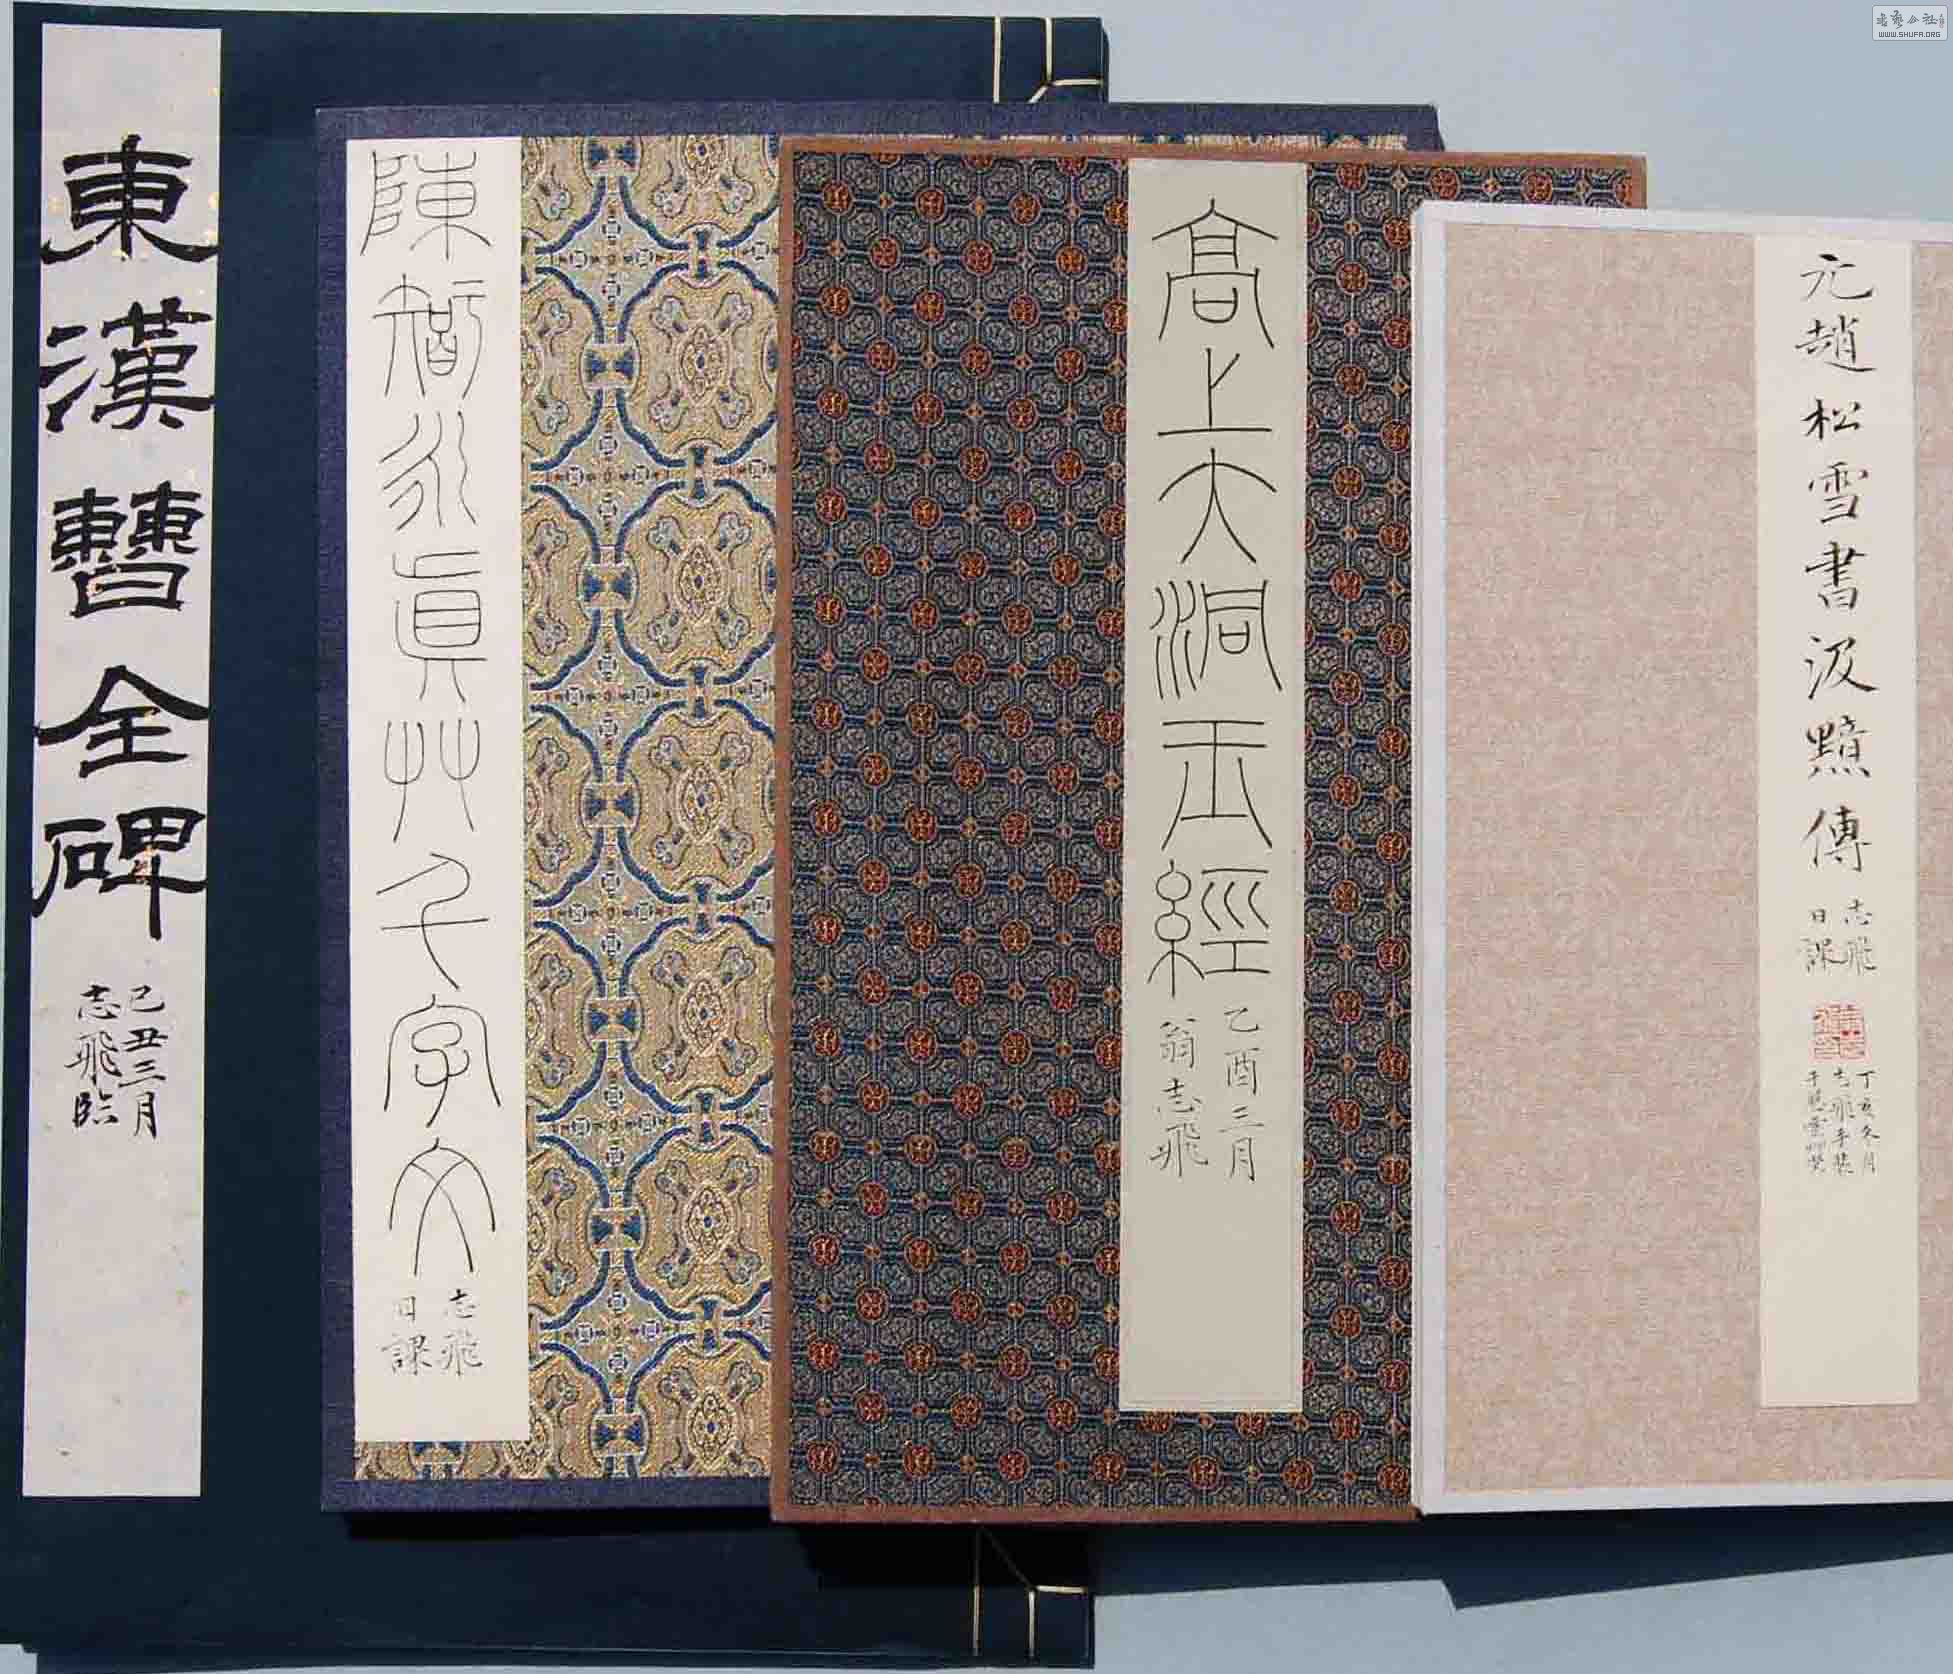 東漢曹全碑
己丑三月
志飛臨
陳智永眞艸千字文
志飛
日課
高上大洞玉經
乙酉三月
翁志飛
元趙松雪書汲黯傳
志飛
日課
丁亥冬月
志飛手裝
WWW.SHUFA.ORG